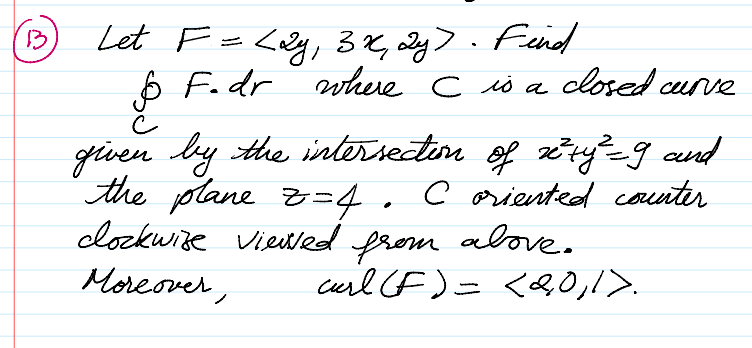 B Let F = <2y, 3x, 2y>. Find
∮ F. dr where C is a closed curve
C
given by the intersection of x²+y²=9 and
the plane z=4. C oriented counter
clockwise viewed from above.
Moreover, curl(F) = <2,0,1>.